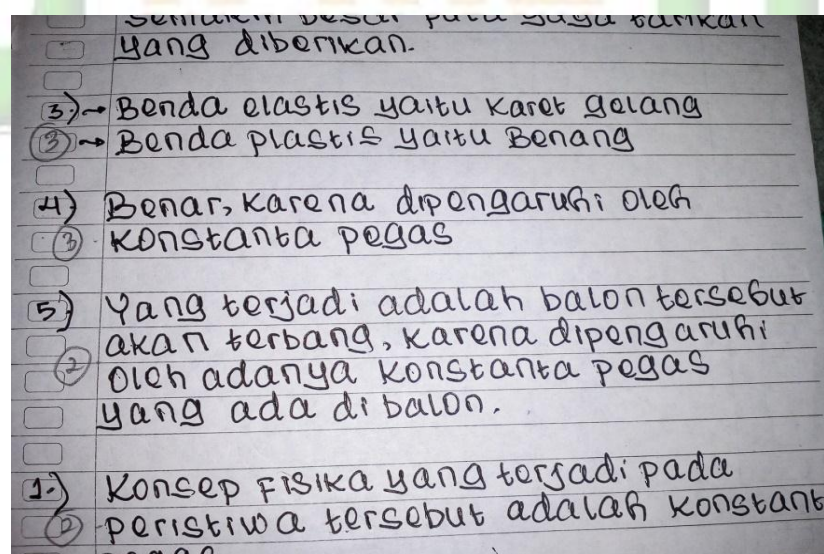 semakin besar pula gaya tarikan
yang diberikan.
3) → Benda elastis yaitu karet gelang
(3) → Benda plastis yaitu Benang
4) Benar, karena dipengaruhi oleh
(3) konstanta pegas
5) Yang terjadi adalah balon tersebut
akan terbang, karena dipengaruhi
(2) oleh adanya konstanta pegas
yang ada di balon.
1.) Konsep Fisika yang terjadi pada
(2) peristiwa tersebut adalah konstant